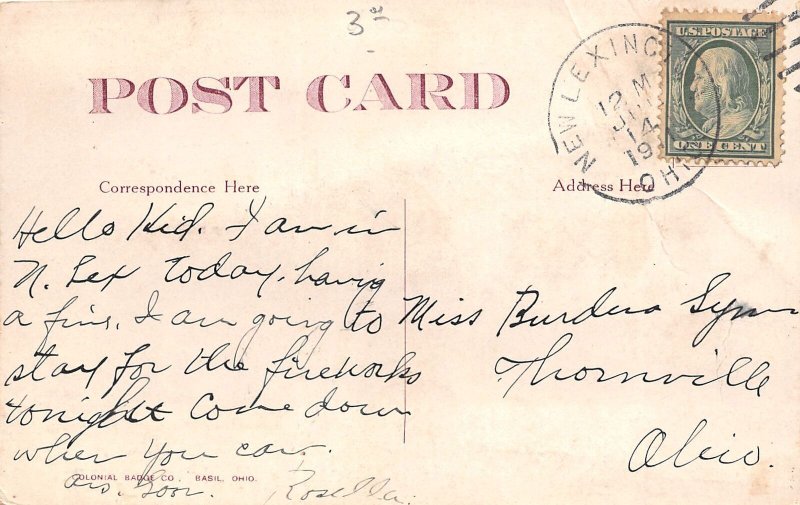 3
U.S. POSTAGE
ONE CENT
NEW LEXINGTON
12 M
14
19
OHIO
POST CARD
Correspondence Here
Address Here
Hello Kid. I am in
N. Lex today, having
a fine, I am going to
stay for the fireworks
tonight Come down
when you can.
Ans. Soon.
Rosella.
Miss
Thornville
Ohio.
COLONIAL BADGE CO., BASIL, OHIO.